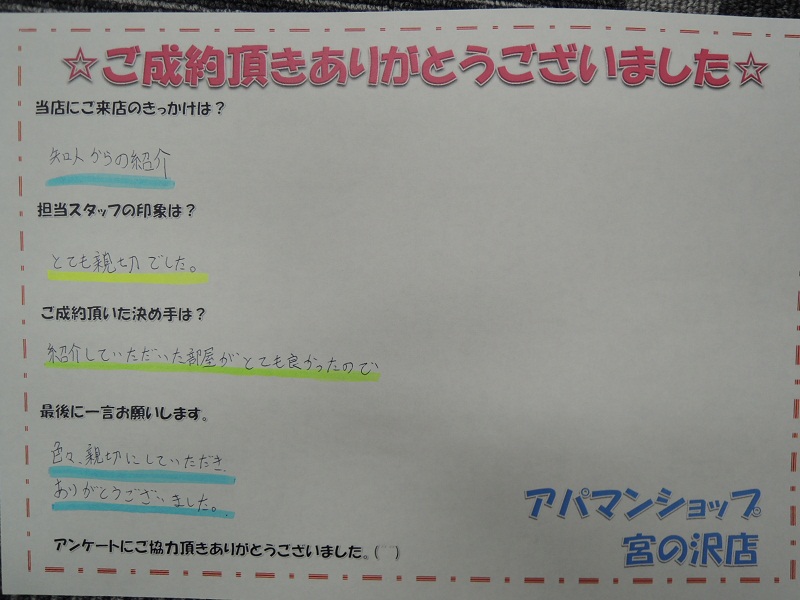 ☆ご成約頂きありがとうございました☆
当店にご来店のきっかけは？
知人からの紹介
担当スタッフの印象は？
とても親切でした。
ご成約頂いた決め手は？
紹介していただいた部屋がとても良かったので
最後に一言お願いします。
色々、親切にしていただき、
ありがとうございました。
アパマンショップ
宮の沢店
アンケートにご協力頂きありがとうございました。(   )